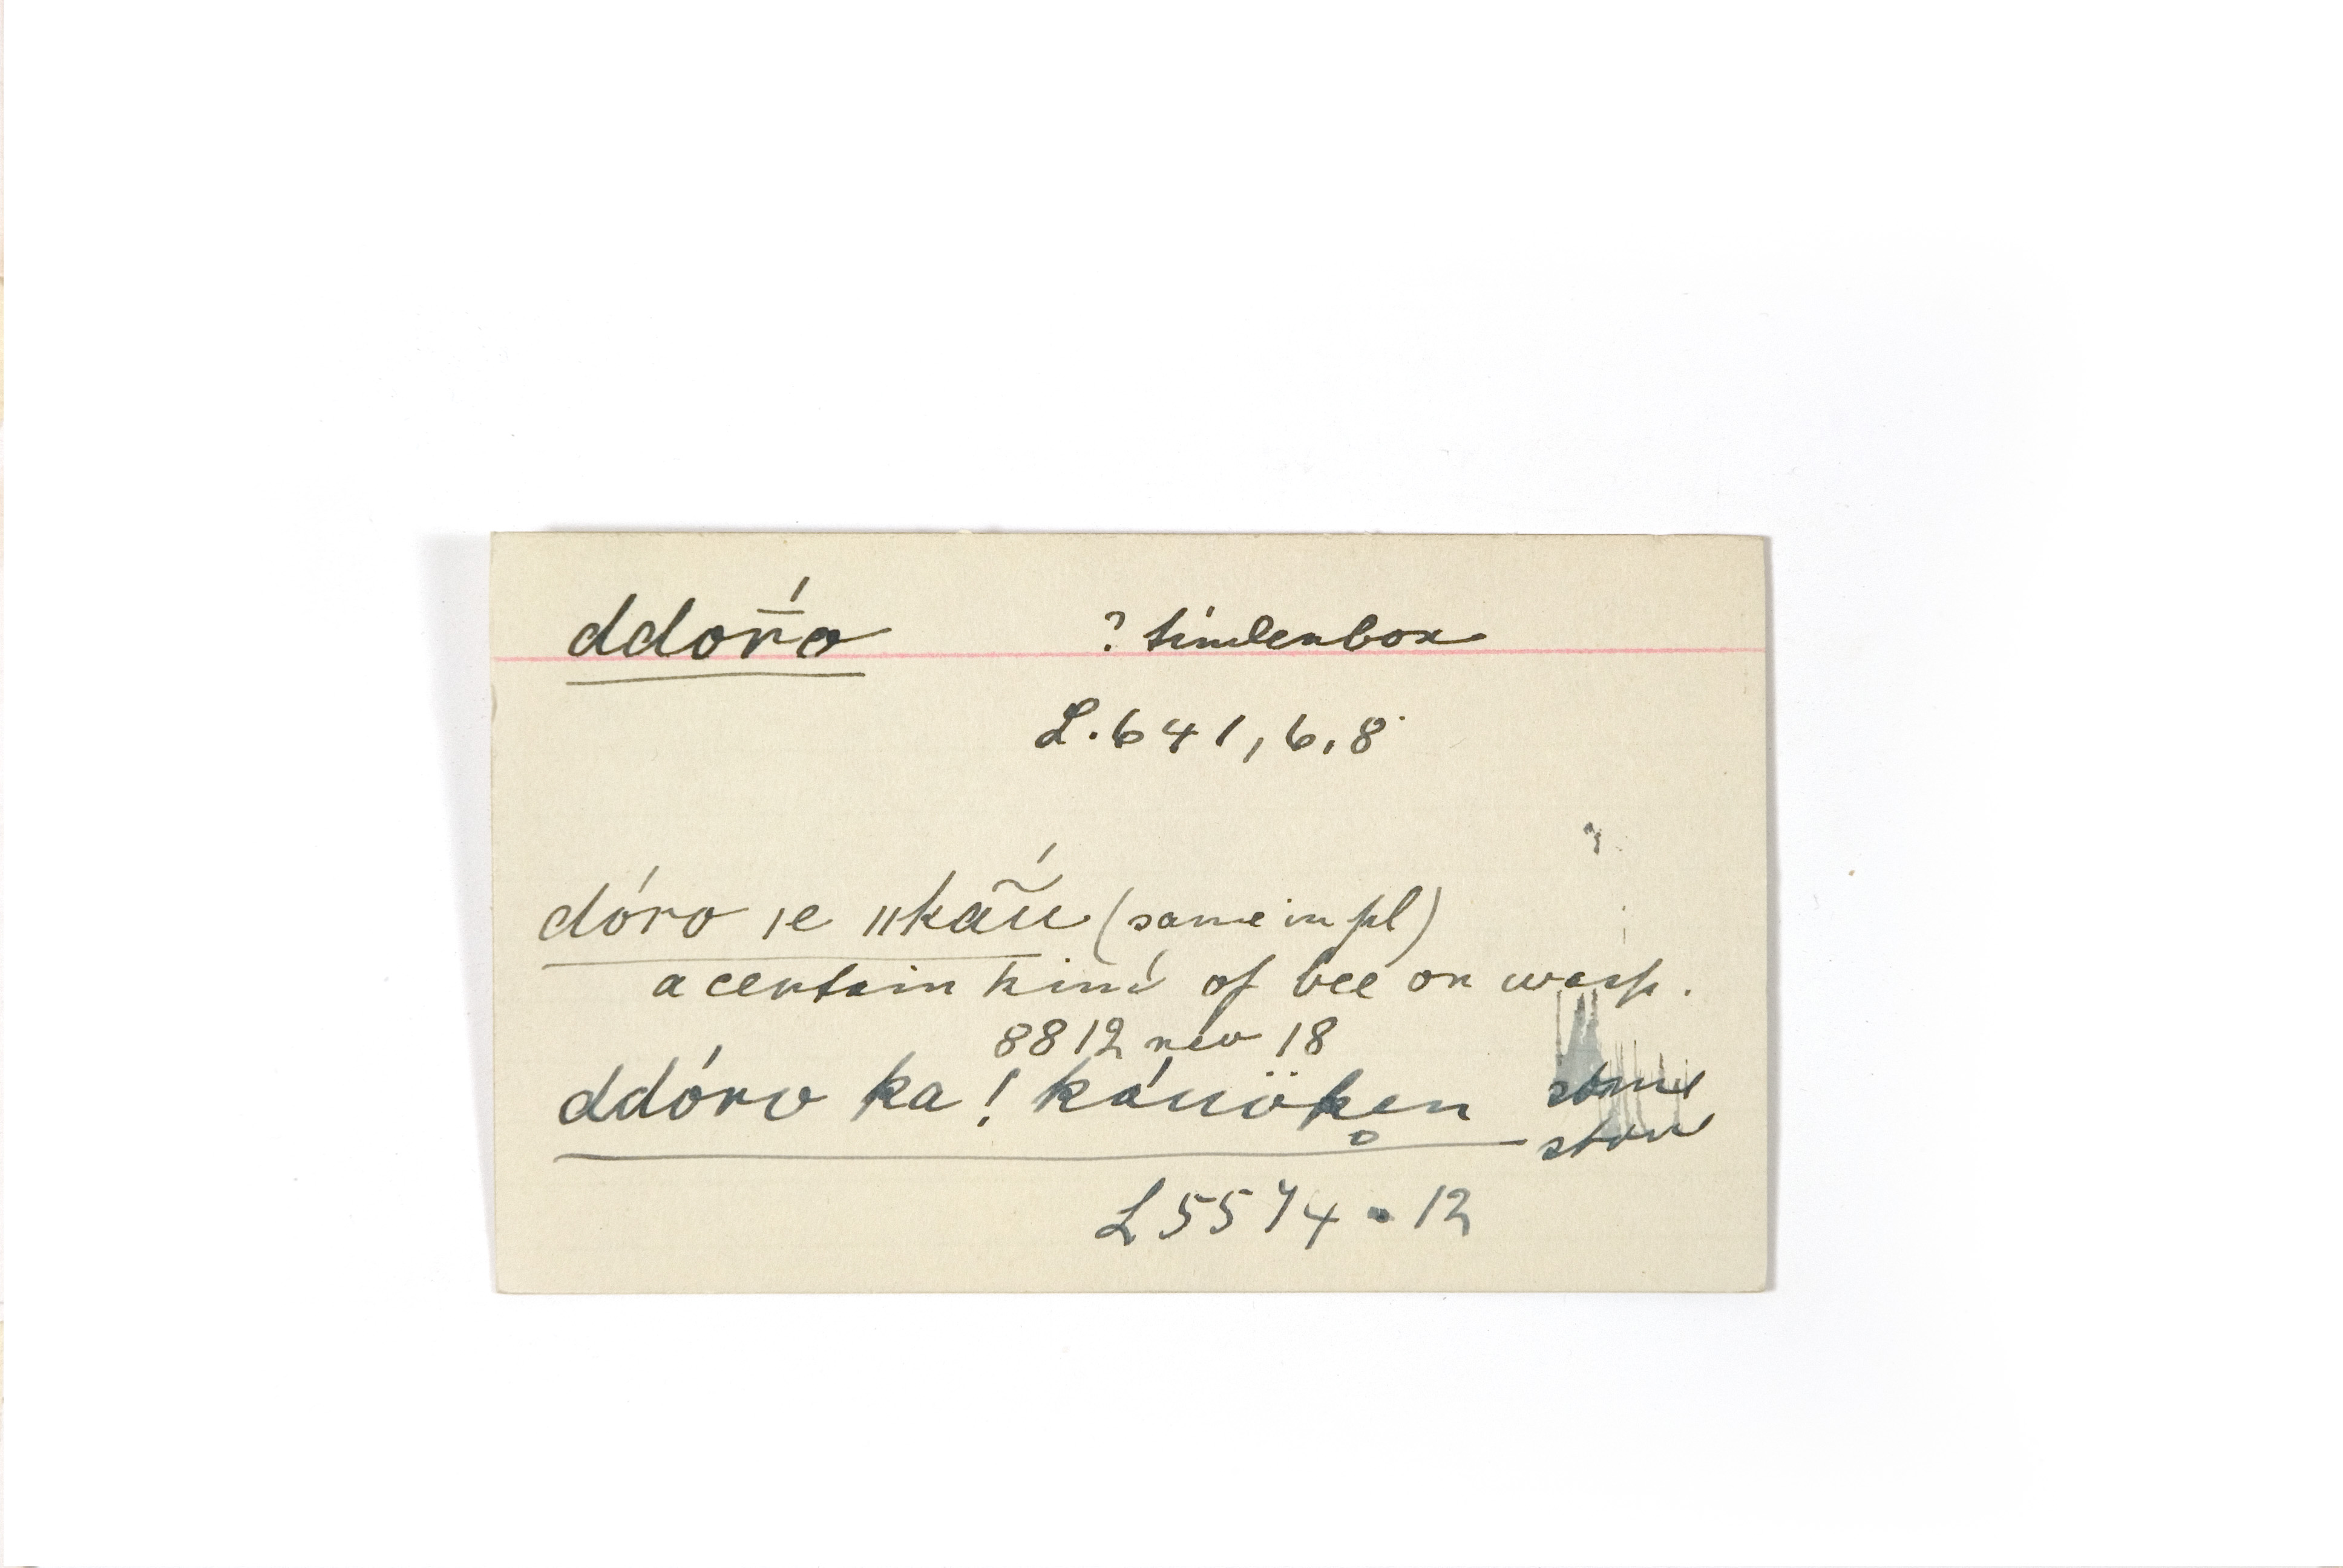 ddor̄́o ? tinderbox
L. 641, 6, 8
dóro ǀe ǁkã́ũ (same in pl)
a certain kind of bee or wasp.
8812 rev 18
ddóro ka ! káuöḱen some
stone
L 5574 - 12